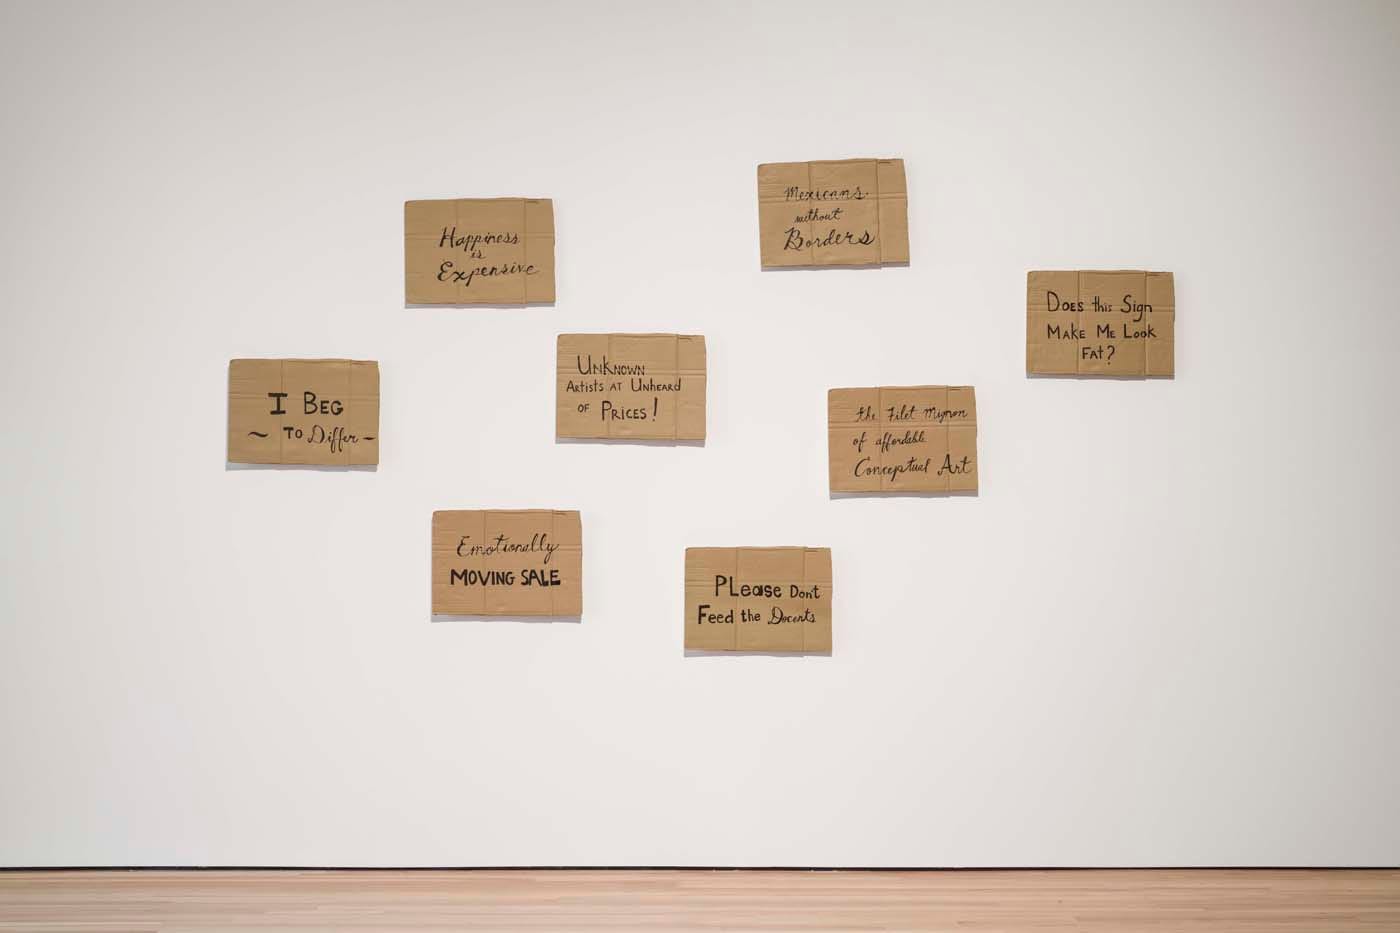 Happiness
is
Expensive
Mexicans
without
Borders
Does this Sign
Make Me Look
Fat?
I Beg
~ To Differ -
Unknown
Artists at Unheard
of Prices!
the Filet Mignon
of affordable
Conceptual Art
Emotionally
MOVING SALE
PLease Don't
Feed the Docents